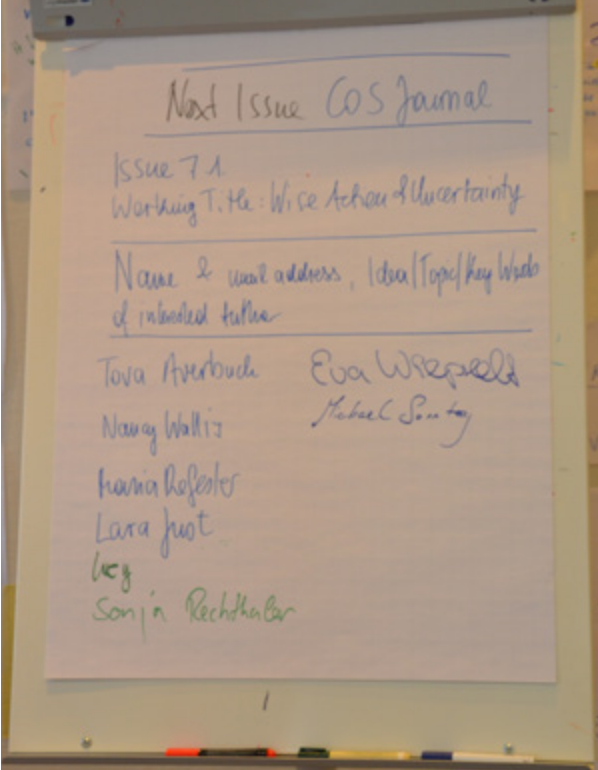 Next Issue COS Journal
Issue 7.1
Working Title: Wise Action & Uncertainty
Name & mail address, Idea/Topic/Key Words
of interested author
Tova Averbuch
Nancy Wallis
Maria
Lara Just
Sonja Rechthaler
Eva
Michael Sonntag